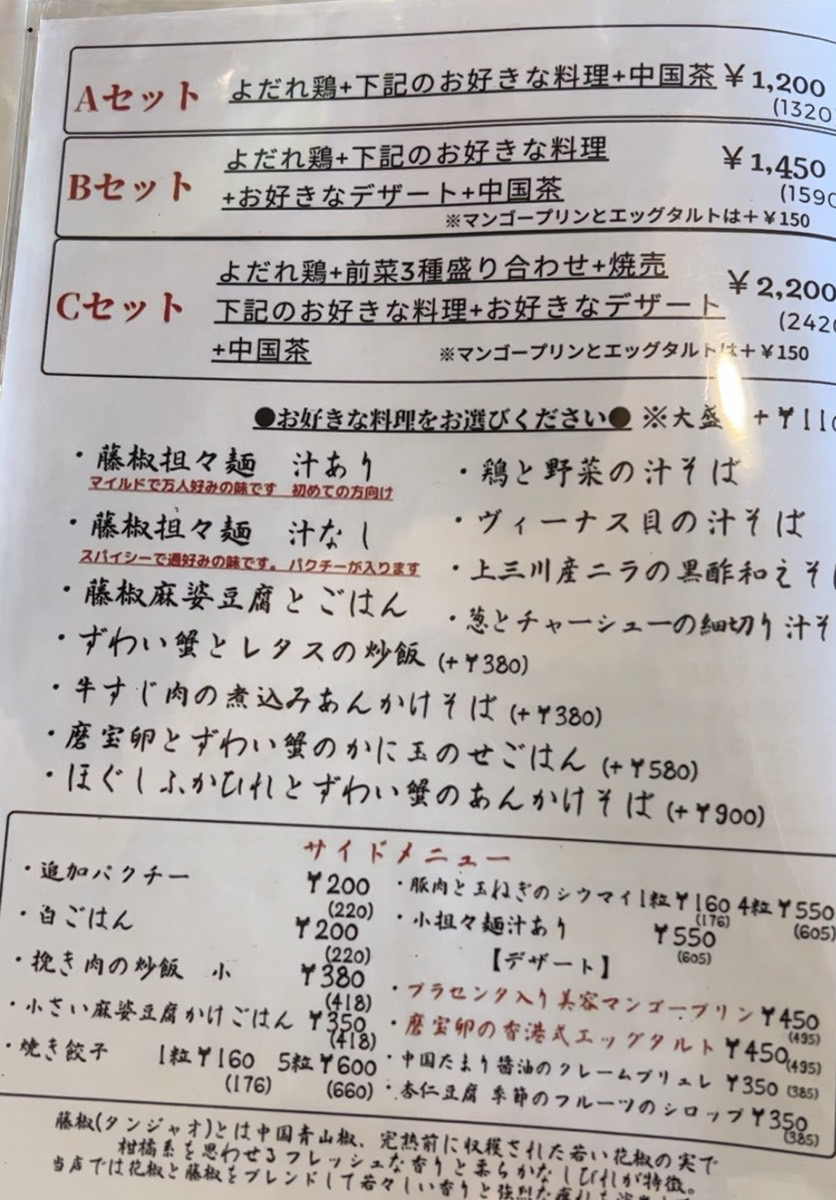 Aセット よだれ鶏+下記のお好きな料理+中国茶 ¥1,200
(1320
Bセット よだれ鶏+下記のお好きな料理 ¥1,450
+お好きなデザート+中国茶 (1590
※マンゴープリンとエッグタルトは+¥150
Cセット よだれ鶏+前菜3種盛り合わせ+焼売 ¥2,200
下記のお好きな料理+お好きなデザート (2420
+中国茶 ※マンゴープリンとエッグタルトは+¥150
●お好きな料理をお選びください● ※大盛 +¥110
・藤椒担々麺 汁あり
マイルドで万人好みの味です 初めての方向け
・藤椒担々麺 汁なし
スパイシーで通好みの味です。パクチーが入ります
・藤椒麻婆豆腐とごはん
・ずわい蟹とレタスの炒飯 (+¥380)
・牛すじ肉の煮込みあんかけそば (+¥380)
・磨宝卵とずわい蟹のかに玉のせごはん (+¥580)
・ほぐしふかひれとずわい蟹のあんかけそば (+¥900)
・鶏と野菜の汁そば
・ヴィーナス貝の汁そば
・上三川産ニラの黒酢和えそ
・葱とチャーシューの細切り汁そ
サイドメニュー
・追加パクチー ¥200
(220)
・白ごはん ¥200
(220)
・挽き肉の炒飯 小 ¥380
(418)
・小さい麻婆豆腐かけごはん ¥350
(418)
・焼き餃子 1粒¥160 5粒¥600
(176) (660)
・豚肉と玉ねぎのシウマイ1粒¥160 4粒¥550
(176) (605)
・小担々麺汁あり ¥550
(605)
【デザート】
・プラセンタ入り美容マンゴープリン¥450
(495)
・磨宝卵の香港式エッグタルト ¥450
(495)
・中国たまり醤油のクレームブリュレ ¥350 (385)
・杏仁豆腐 季節のフルーツのシロップ¥350
(385)
藤椒(タンジャオ)とは中国青山椒、完熟前に収穫された若い花椒の実で
柑橘系を思わせるフレッシュな香りと柔らかなしびれが特徴。
当店では花椒と藤椒をブレンドして若々しい香りと強烈な